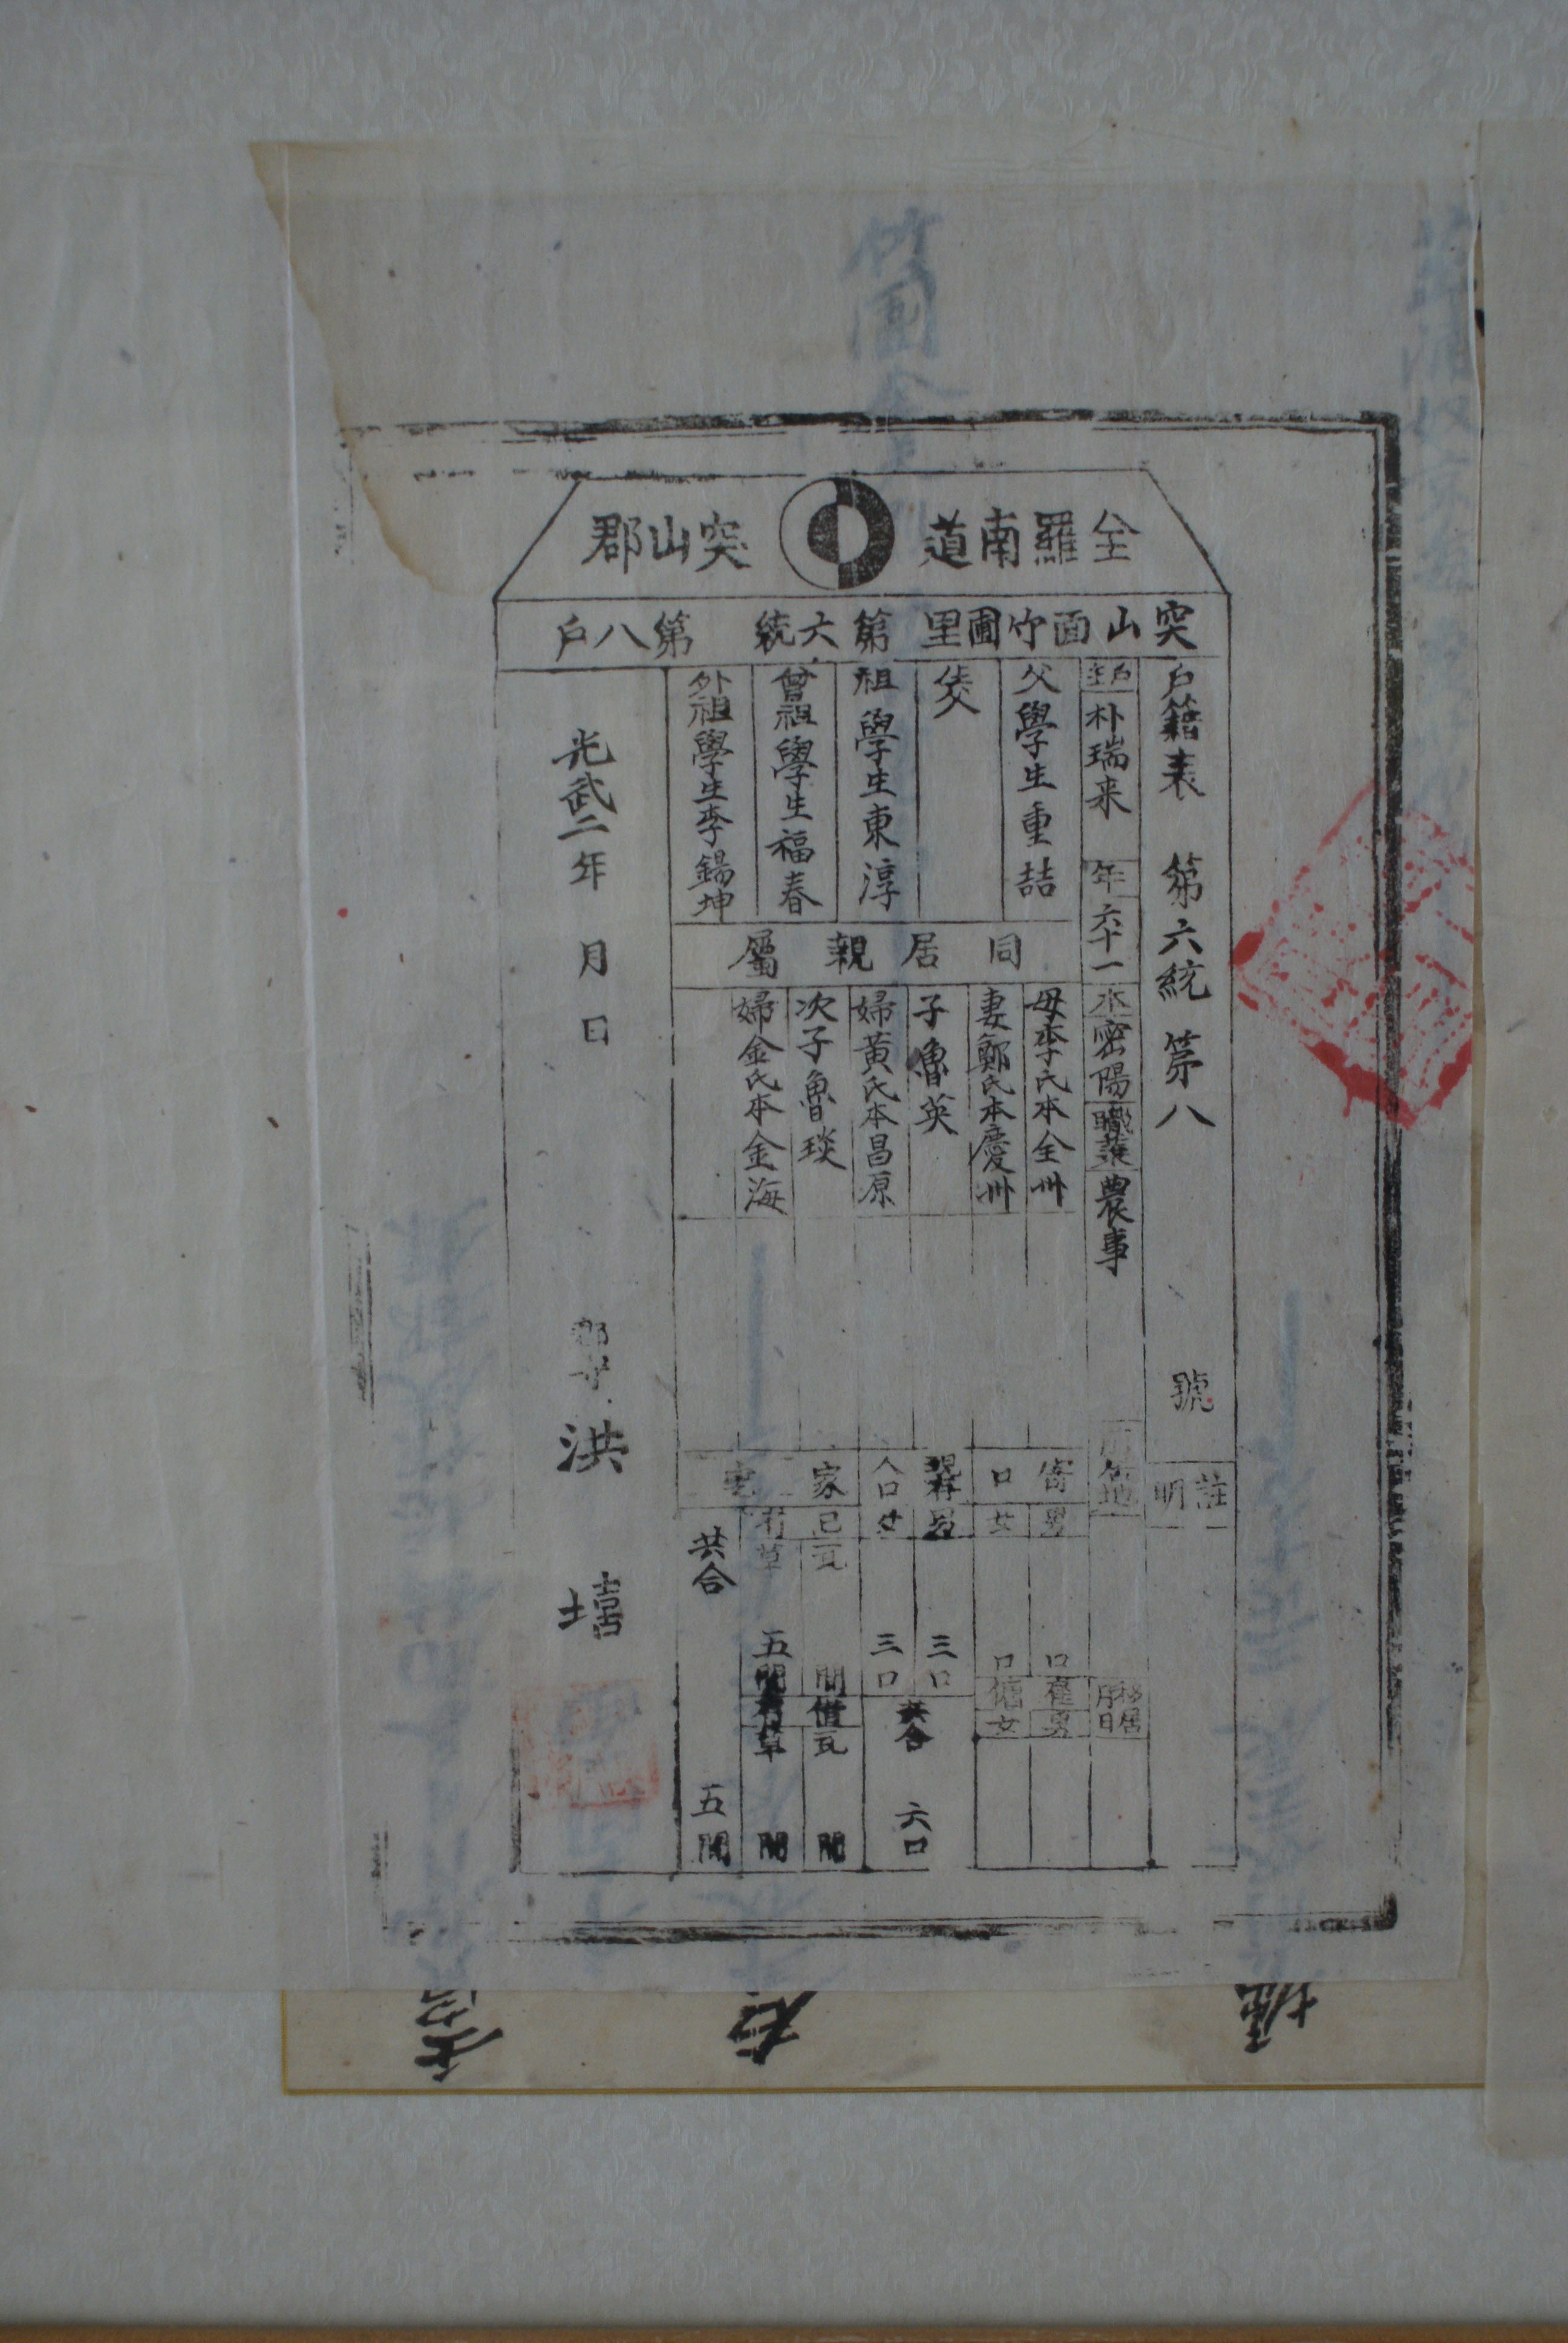 全羅南道 突山郡
突山面竹圃里 第六統 第八戶
戶籍表 第六統 第八 號
註明
戶主 朴瑞來 年 六十一 本 密陽 職業 農事
移居月日
父 學生重喆
祖 學生東淳
曾祖 學生福春
外祖 學生李錫坤
同居親屬
母李氏本全州
妻鄭氏本慶州
子魯英
婦黃氏本昌原
次子魯琰
婦金氏本金海
寄口 男 口 雇男
女 口 傭女
現存人口 男 三口
女 三口
共合 六口
家宅
已有 瓦 間 借有 瓦 間
草 五間 草 間
共合 五間
光武二年 月 日
郡守 洪 墡